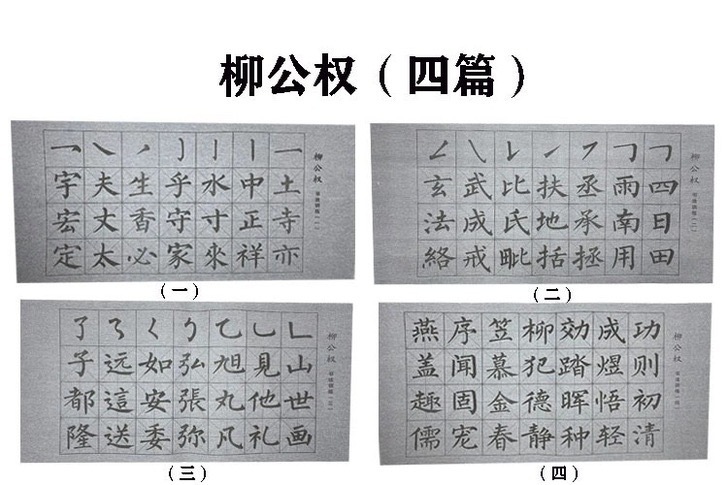 柳公权（四篇）
柳公权
一土寺亦
丨中正祥
亅水寸來
乎守家
生香必
夫丈太
冖宇宏定
（一）
柳公权
四日田
雨南用
丞承拯
扶地括
比氏毗
武成戒
玄法絡
（二）
柳公权
山世画
見他礼
乙旭丸凡
弘張弥
如安委
远這送
了子都隆
（三）
柳公权
功则初清
成煜悟轻
効踏晖种
柳犯德静
笠慕金春
序闻固宠
燕盖趣儒
（四）